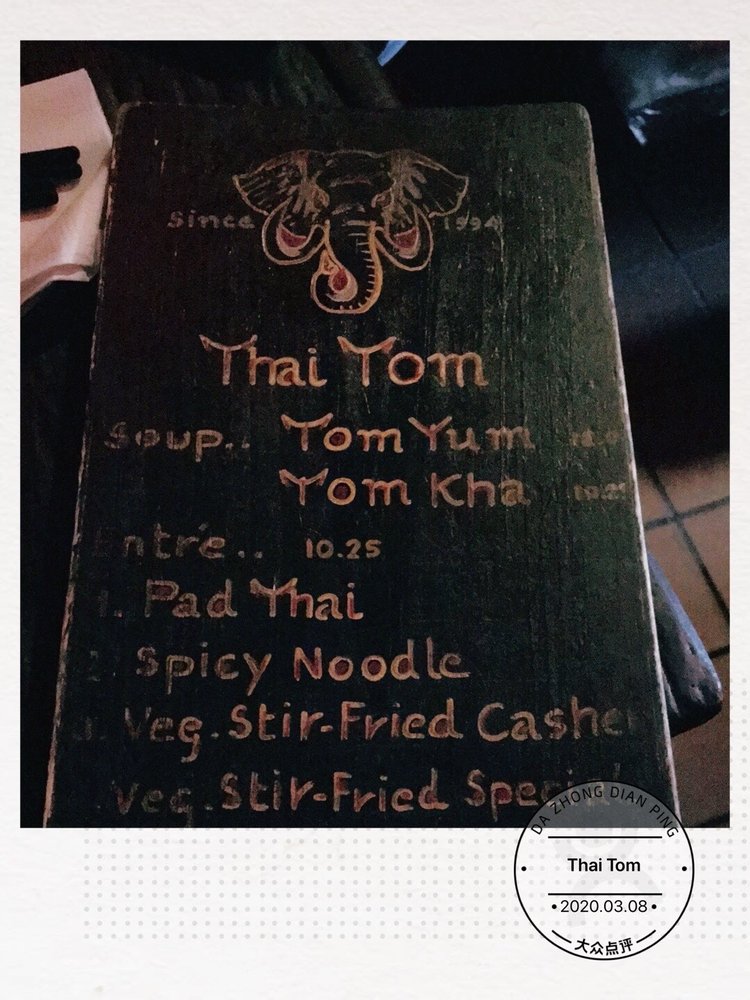 Since 1994
Thai Tom
Soup.. Tom Yum
Tom Kha
Entre.. 10.25
1. Pad Thai
2. Spicy Noodle
Veg. Stir-Fried
Veg. Stir-Fried Special
DA ZHONG DIAN PING
Thai Tom
•2020.03.08•
大众点评